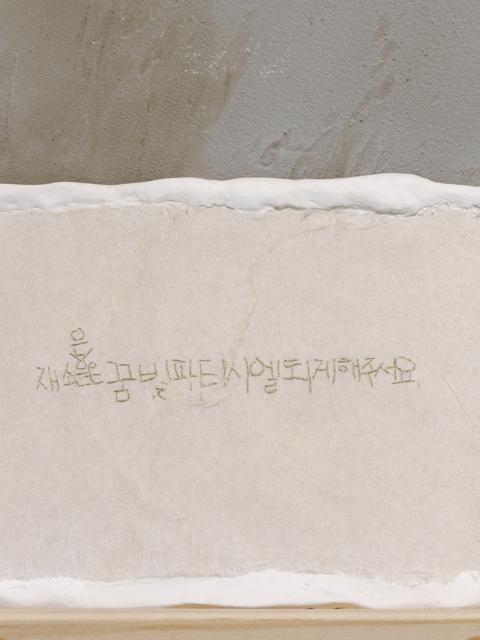 재 은 꿈 빌 파 티시엘 되게해주서요.